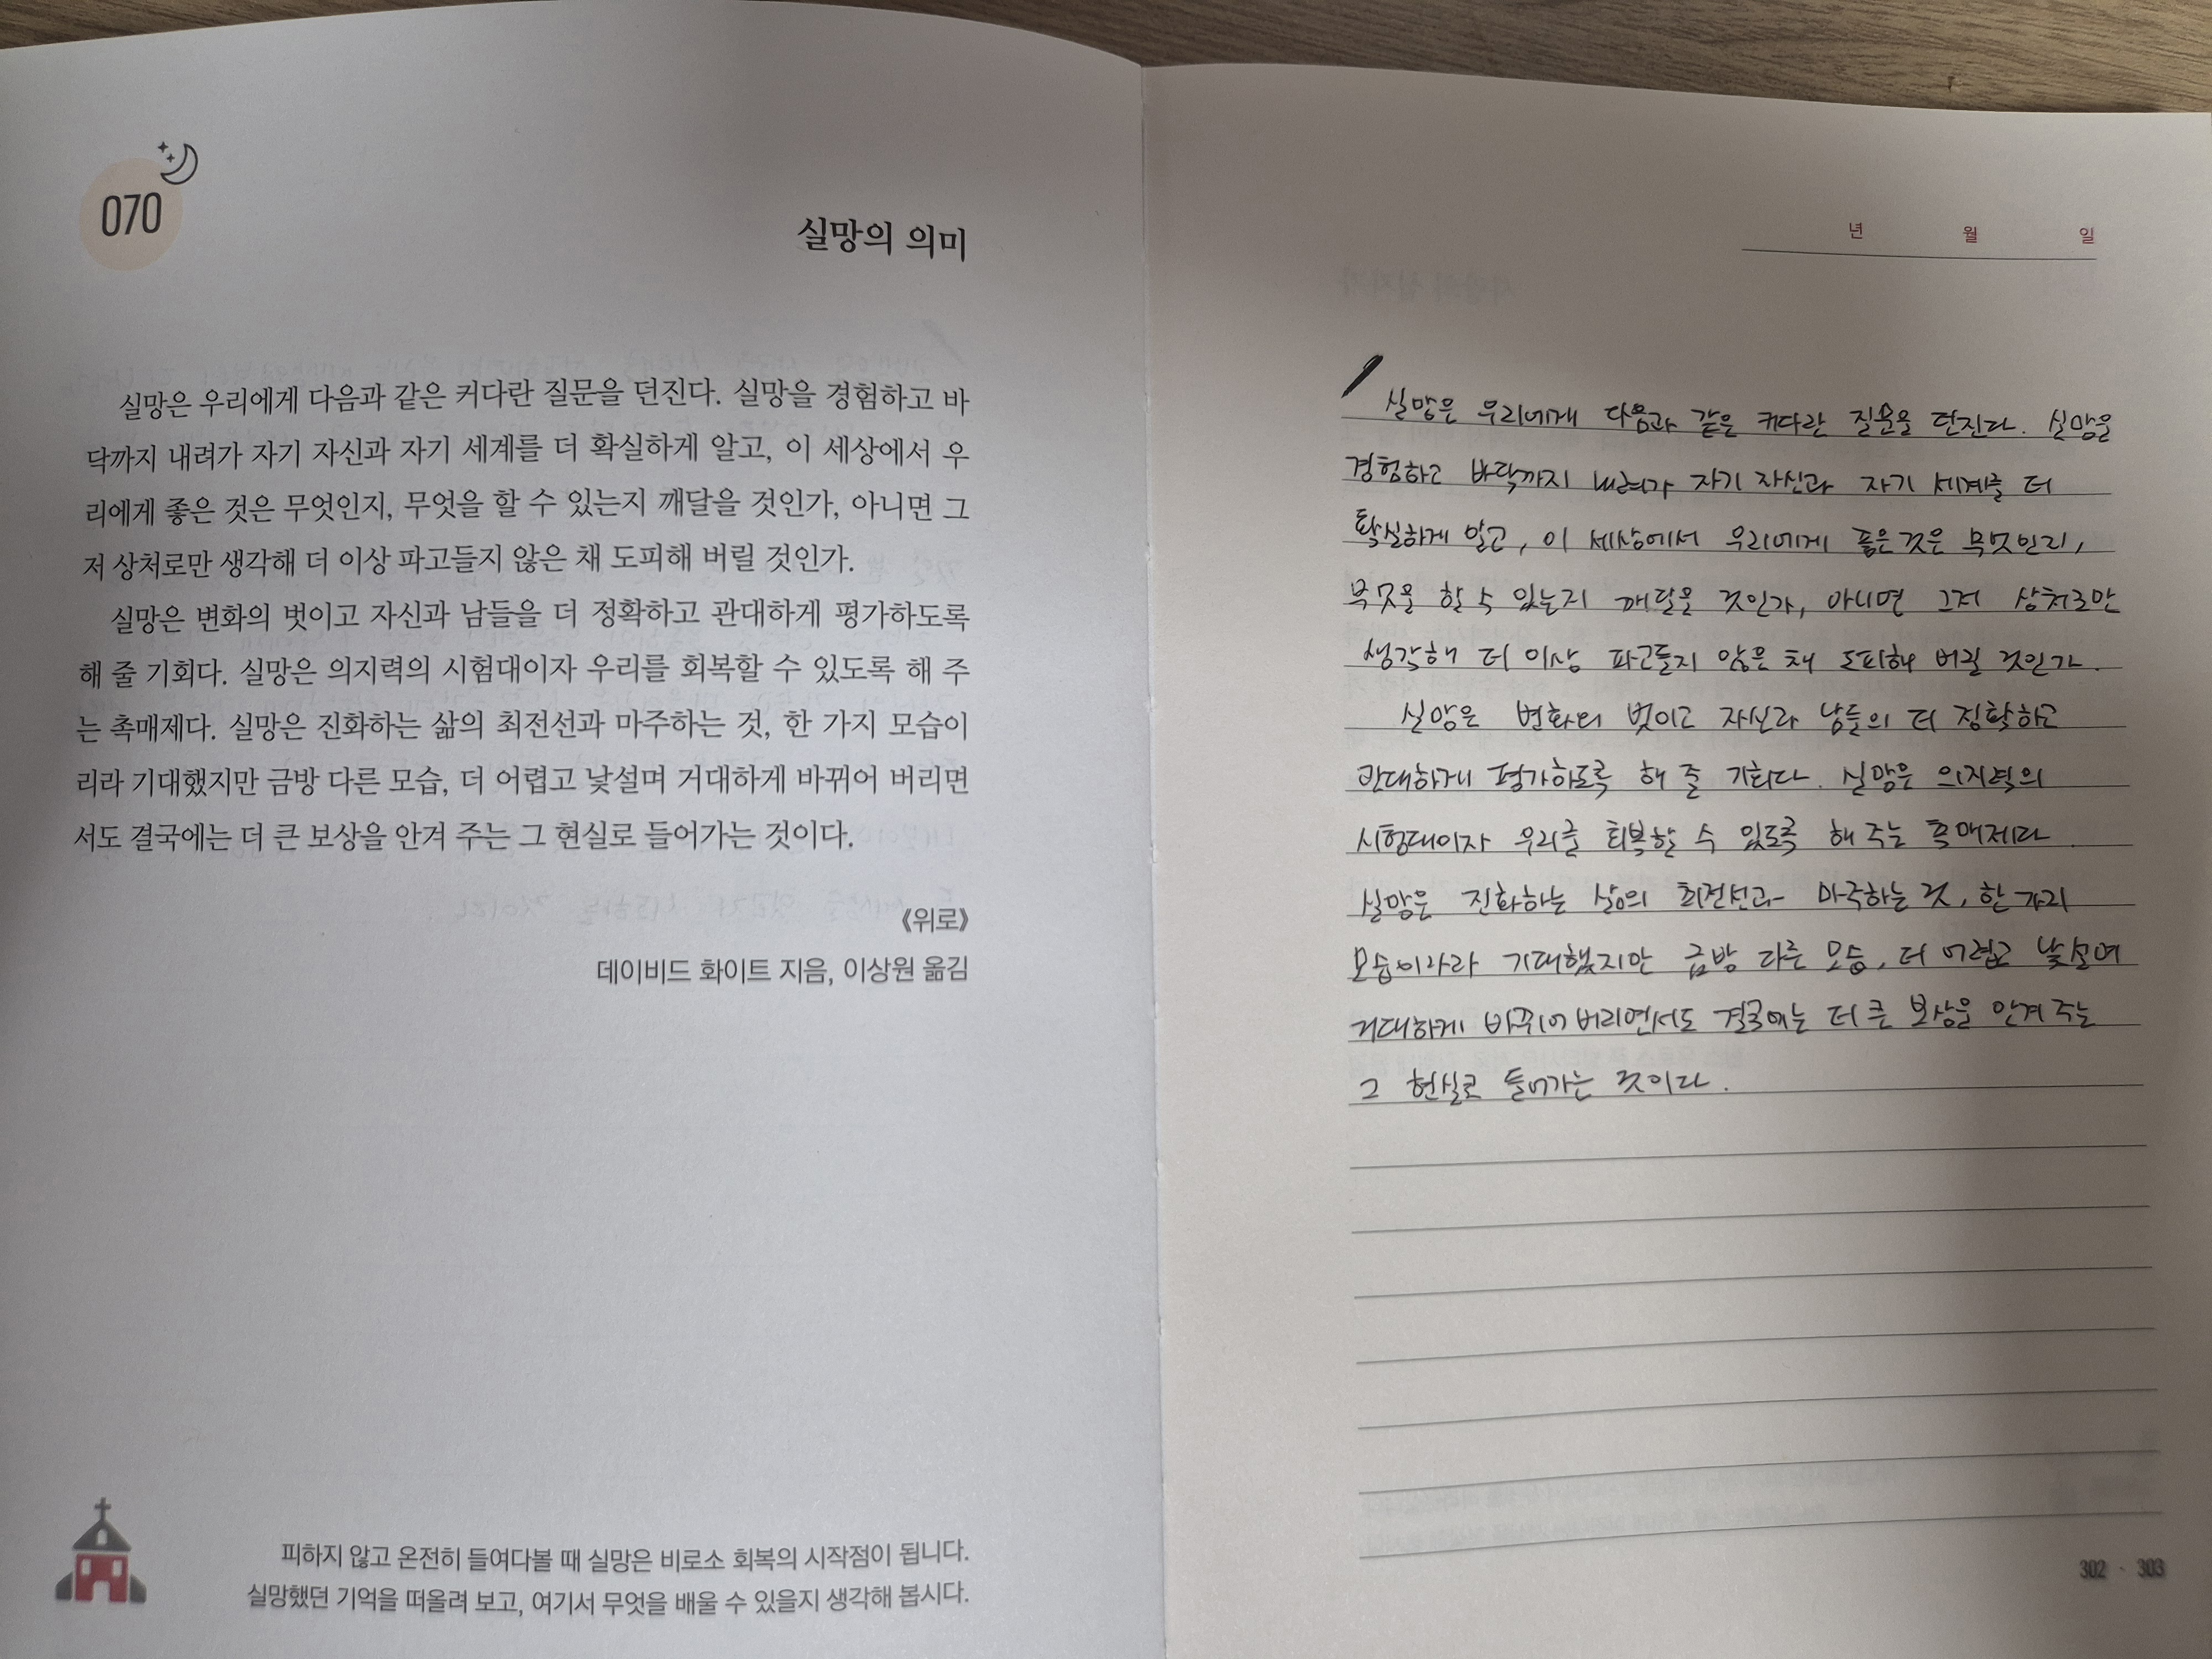 070
실망의 의미
실망은 우리에게 다음과 같은 커다란 질문을 던진다. 실망을 경험하고 바
닥까지 내려가 자기 자신과 자기 세계를 더 확실하게 알고, 이 세상에서 우
리에게 좋은 것은 무엇인지, 무엇을 할 수 있는지 깨달을 것인가, 아니면 그
저 상처로만 생각해 더 이상 파고들지 않은 채 도피해 버릴 것인가.
실망은 변화의 벗이고 자신과 남들을 더 정확하고 관대하게 평가하도록
해 줄 기회다. 실망은 의지력의 시험대이자 우리를 회복할 수 있도록 해 주
는 촉매제다. 실망은 진화하는 삶의 최전선과 마주하는 것, 한 가지 모습이
리라 기대했지만 금방 다른 모습, 더 어렵고 낯설며 거대하게 바뀌어 버리면
서도 결국에는 더 큰 보상을 안겨 주는 그 현실로 들어가는 것이다.
《위로》
데이비드 화이트 지음, 이상원 옮김
피하지 않고 온전히 들여다볼 때 실망은 비로소 회복의 시작점이 됩니다.
실망했던 기억을 떠올려 보고, 여기서 무엇을 배울 수 있을지 생각해 봅시다.
년 월 일
실망은 우리에게 다음과 같은 커다란 질문을 던진다. 실망을
경험하고 바닥까지 내려가 자기 자신과 자기 세계를 더
확실하게 알고, 이 세상에서 우리에게 좋은 것은 무엇인지,
무엇을 할 수 있는지 깨달을 것인가, 아니면 그저 상처로만
생각해 더 이상 파고들지 않은 채 도피해 버릴 것인가.
실망은 변화의 벗이고 자신과 남들의 더 정확하고
관대하게 평가하도록 해 줄 기회다. 실망은 의지력의
시험대이자 우리를 회복할 수 있도록 해 주는 촉매제다.
실망은 진화하는 삶의 최전선과 마주하는 것, 한 가지
모습이라라 기대했지만 금방 다른 모습, 더 어렵고 낯설며
거대하게 바뀌어 버리면서도 결국에는 더 큰 보상을 안겨 주는
그 현실로 들어가는 것이다.
302 · 303